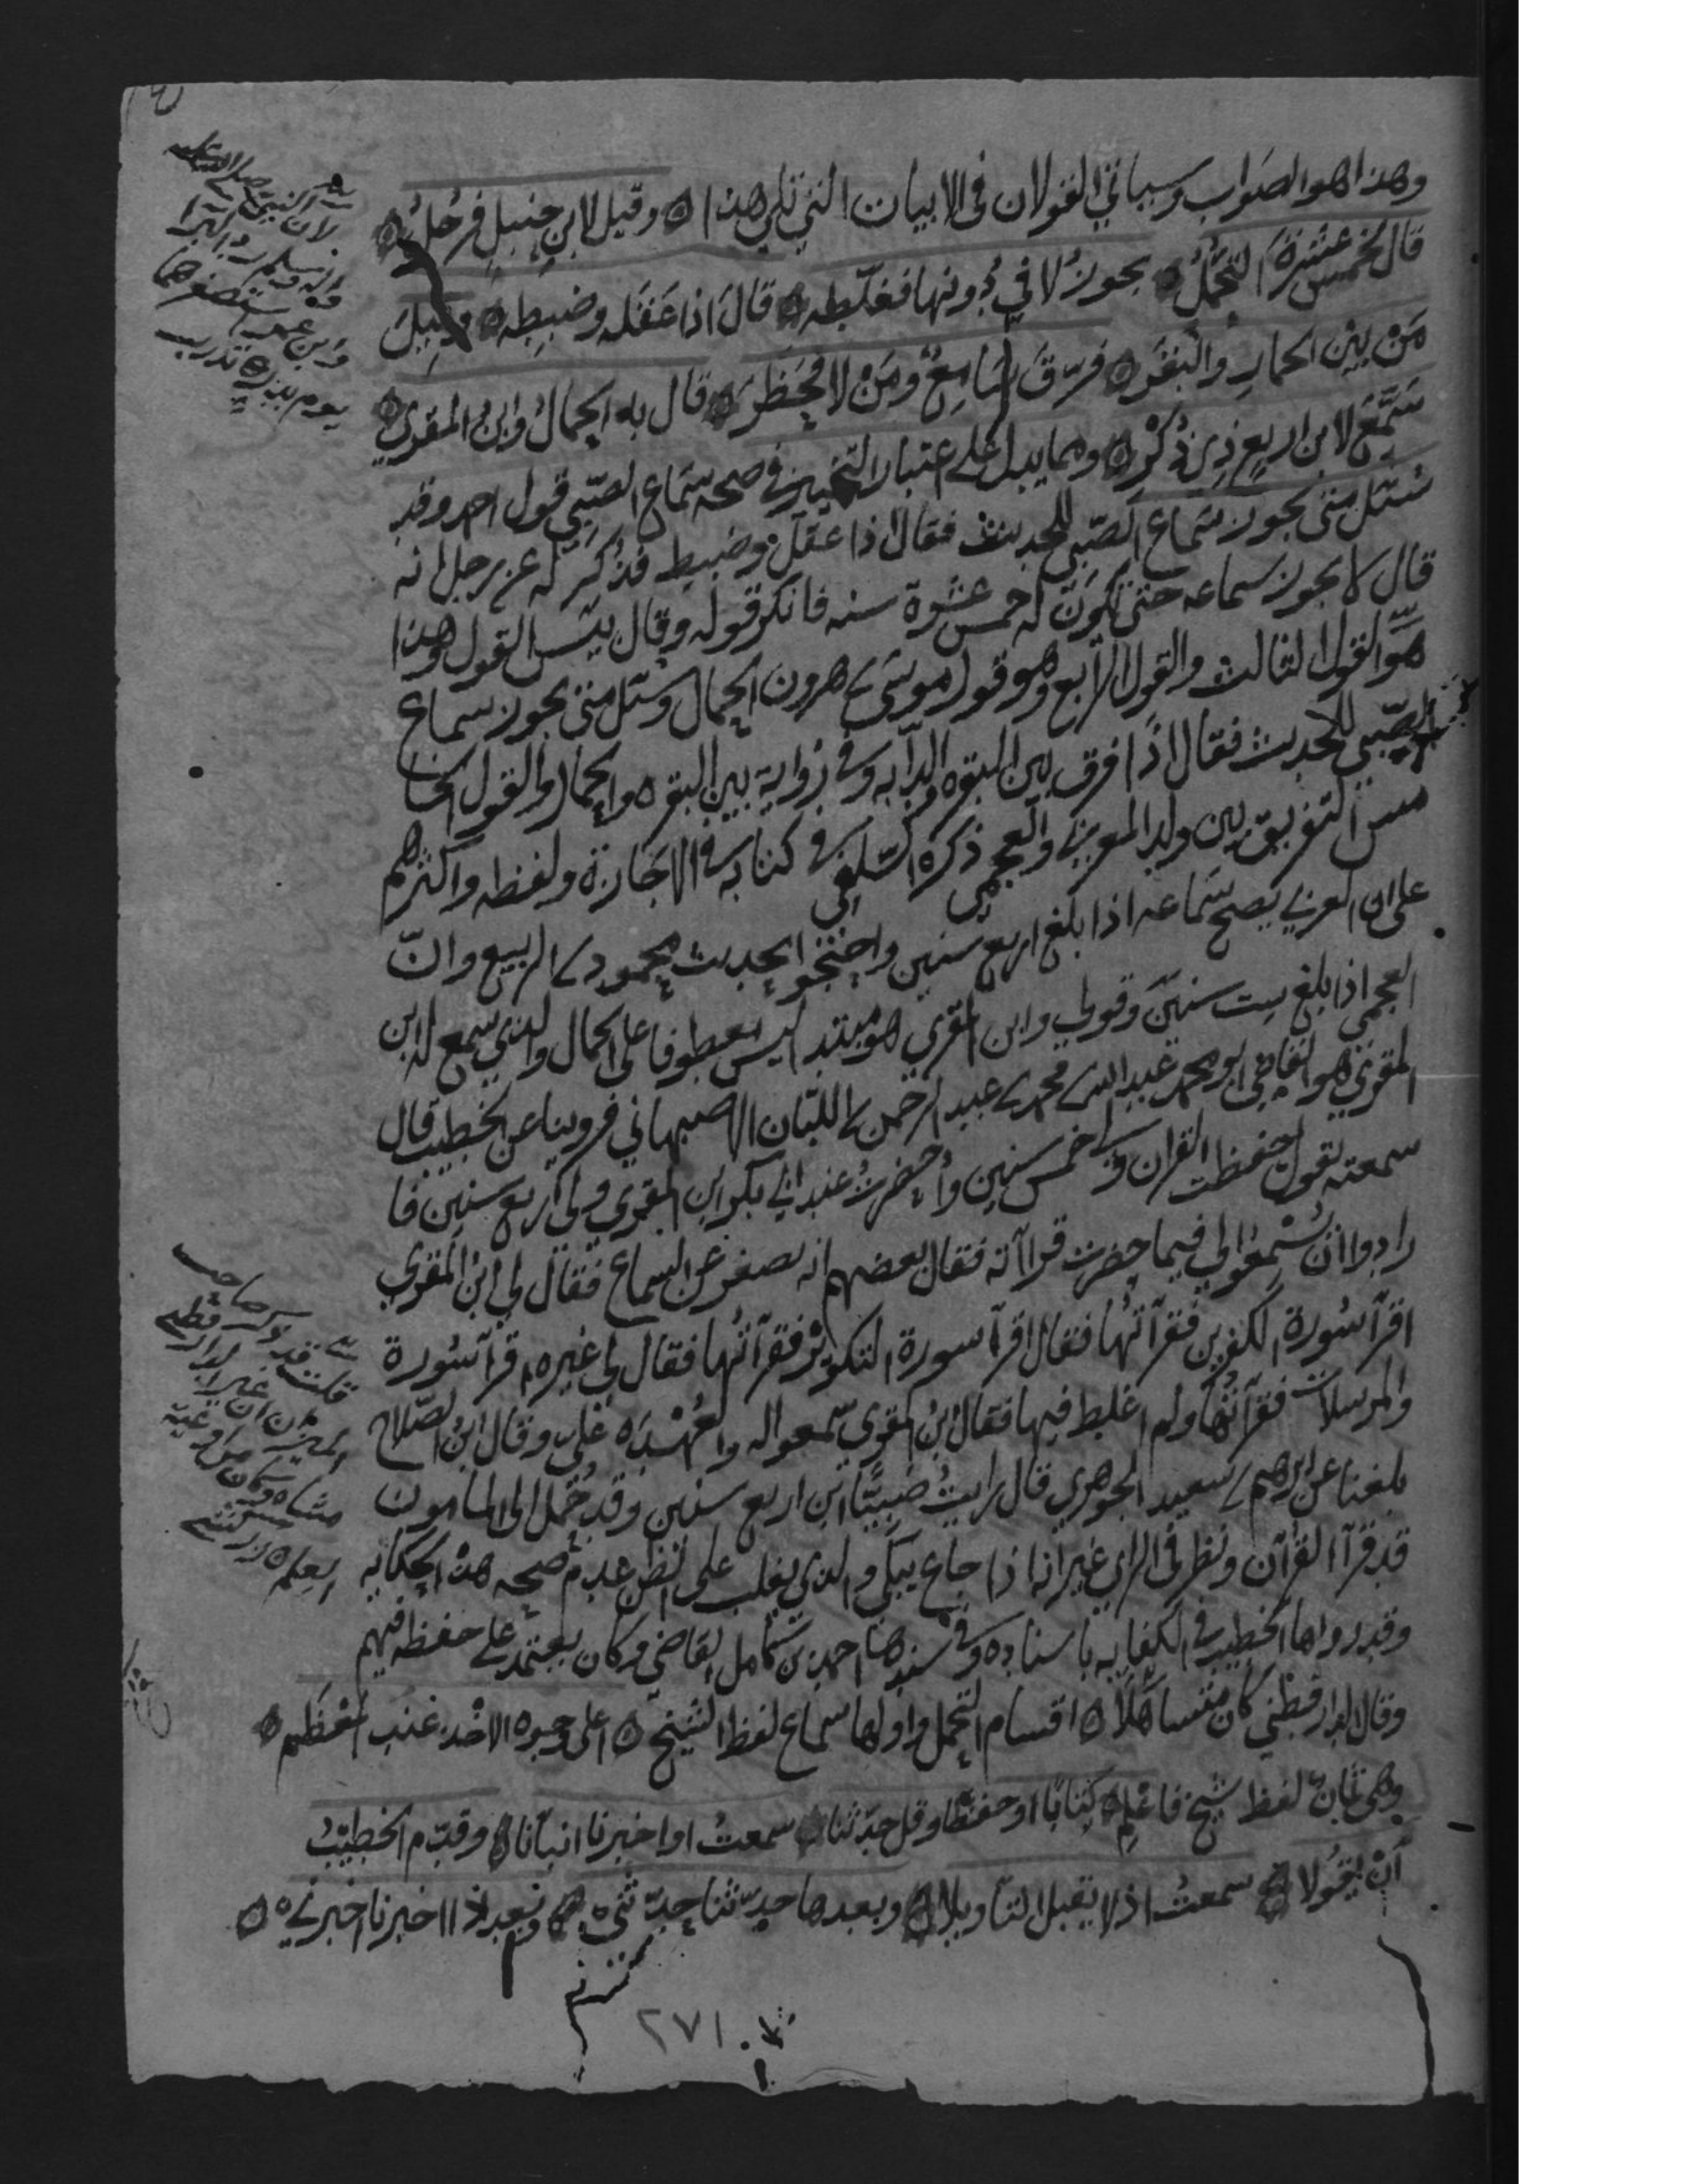 وهذا هو الصواب وسياتي القولان في الابيات التي تلي هذا ه وقيل لابن حنبل فرجل ه
قال لخمس عشرة التحمل ه يجوز لا في دونها فغلطه ه قال اذا عقله وضبطه ه وقيل
من بين الحمار والبقر ه فرق سامع ومن لا فحظر ه قال به الحمال وابن المقري ه
سمع لابن اربع ذي ذكر ه ومما يدل على اعتبار التمييز في صحه سماع الصبي قول احمد وقد
سئل متى يجوز سماع الصبي للحديث فقال اذا عقل وضبط فذكر له عن رجل انه
قال لا يجوز سماعه حتى تكون له خمس عشرة سنه فانكر قوله وقال بئس القول وهذا
هو القول الثالث والقول الرابع وهو قول موسى بن هرون الحمال وسئل متى يجوز سماع
الصبي للحديث فقال اذا فرق بين البقره والدابه وفي رواية بين البقره والحمار والقول الخا
مس التفريق بين ولد العربي والعجمي ذكره السلفي في كتابه في الاجازة ولفظه واكثرهم
على ان العربي يصح سماعه اذا بلغ اربع سنين واحتجوا بحديث محمود بن الربيع وان
العجمي اذا بلغ ست سنين وقولي وابن المقري هو مبتدا ليس معطوفا على الحمال والذي سمع له ابن
المقري هو القاضي ابو محمد عبد الله بن محمد بن عبد الرحمن بن اللبان الاصبهاني فروينا عن الخطيب قال
سمعته يقول حفظت القران ولي خمس سنين واحضرت عند ابي بكر ابن المقري ولي اربع سنين فا
رادوا ان يسمعوا لي فيما حضرت قراآته فقال بعضهم انه يصغر عن السماع فقال لي ابن المقري
اقرأ سورة الكفرين فقرأتها فقال اقرأ سورة التكوير فقرأتها فقال لي غيره اقرأ سورة
والمرسلات فقرأتها ولم اغلط فيها فقال ابن المقري سمعوا له والعهدة علي وقال ابن الصلاح
بلغنا عن ابرهيم بن سعيد الجوهري قال رايت صبيا ابن اربع سنين وقد حمل الى المامون
قد قرأ القرآن ونظر في الراي غير انه اذا جاع يبكي والذي يغلب على الظن عدم صحه هذه الحكايه
وقد رواها الخطيب في الكفايه باسناده وفي سندها احمد بن كامل القاضي وكان يعتمد على حفظه فيهم
وقال الدارقطني كان متساهلا ه اقسام التحمل واولها سماع لفظ الشيخ ه اعلى وجوه الاخذ عند المعظم ه
وهي ثمان لفظ شيخ فاعلم ه كتابا او حفظا وقل حدثنا ه سمعت او اخبرنا انبأنا ه وقدم الخطيب
ان يقولا ه سمعت اذ لا يقبل التأويلا ه وبعدها حدثنا حدثني ه وبعد ذا اخبرنا اخبرني ه
٢٧١